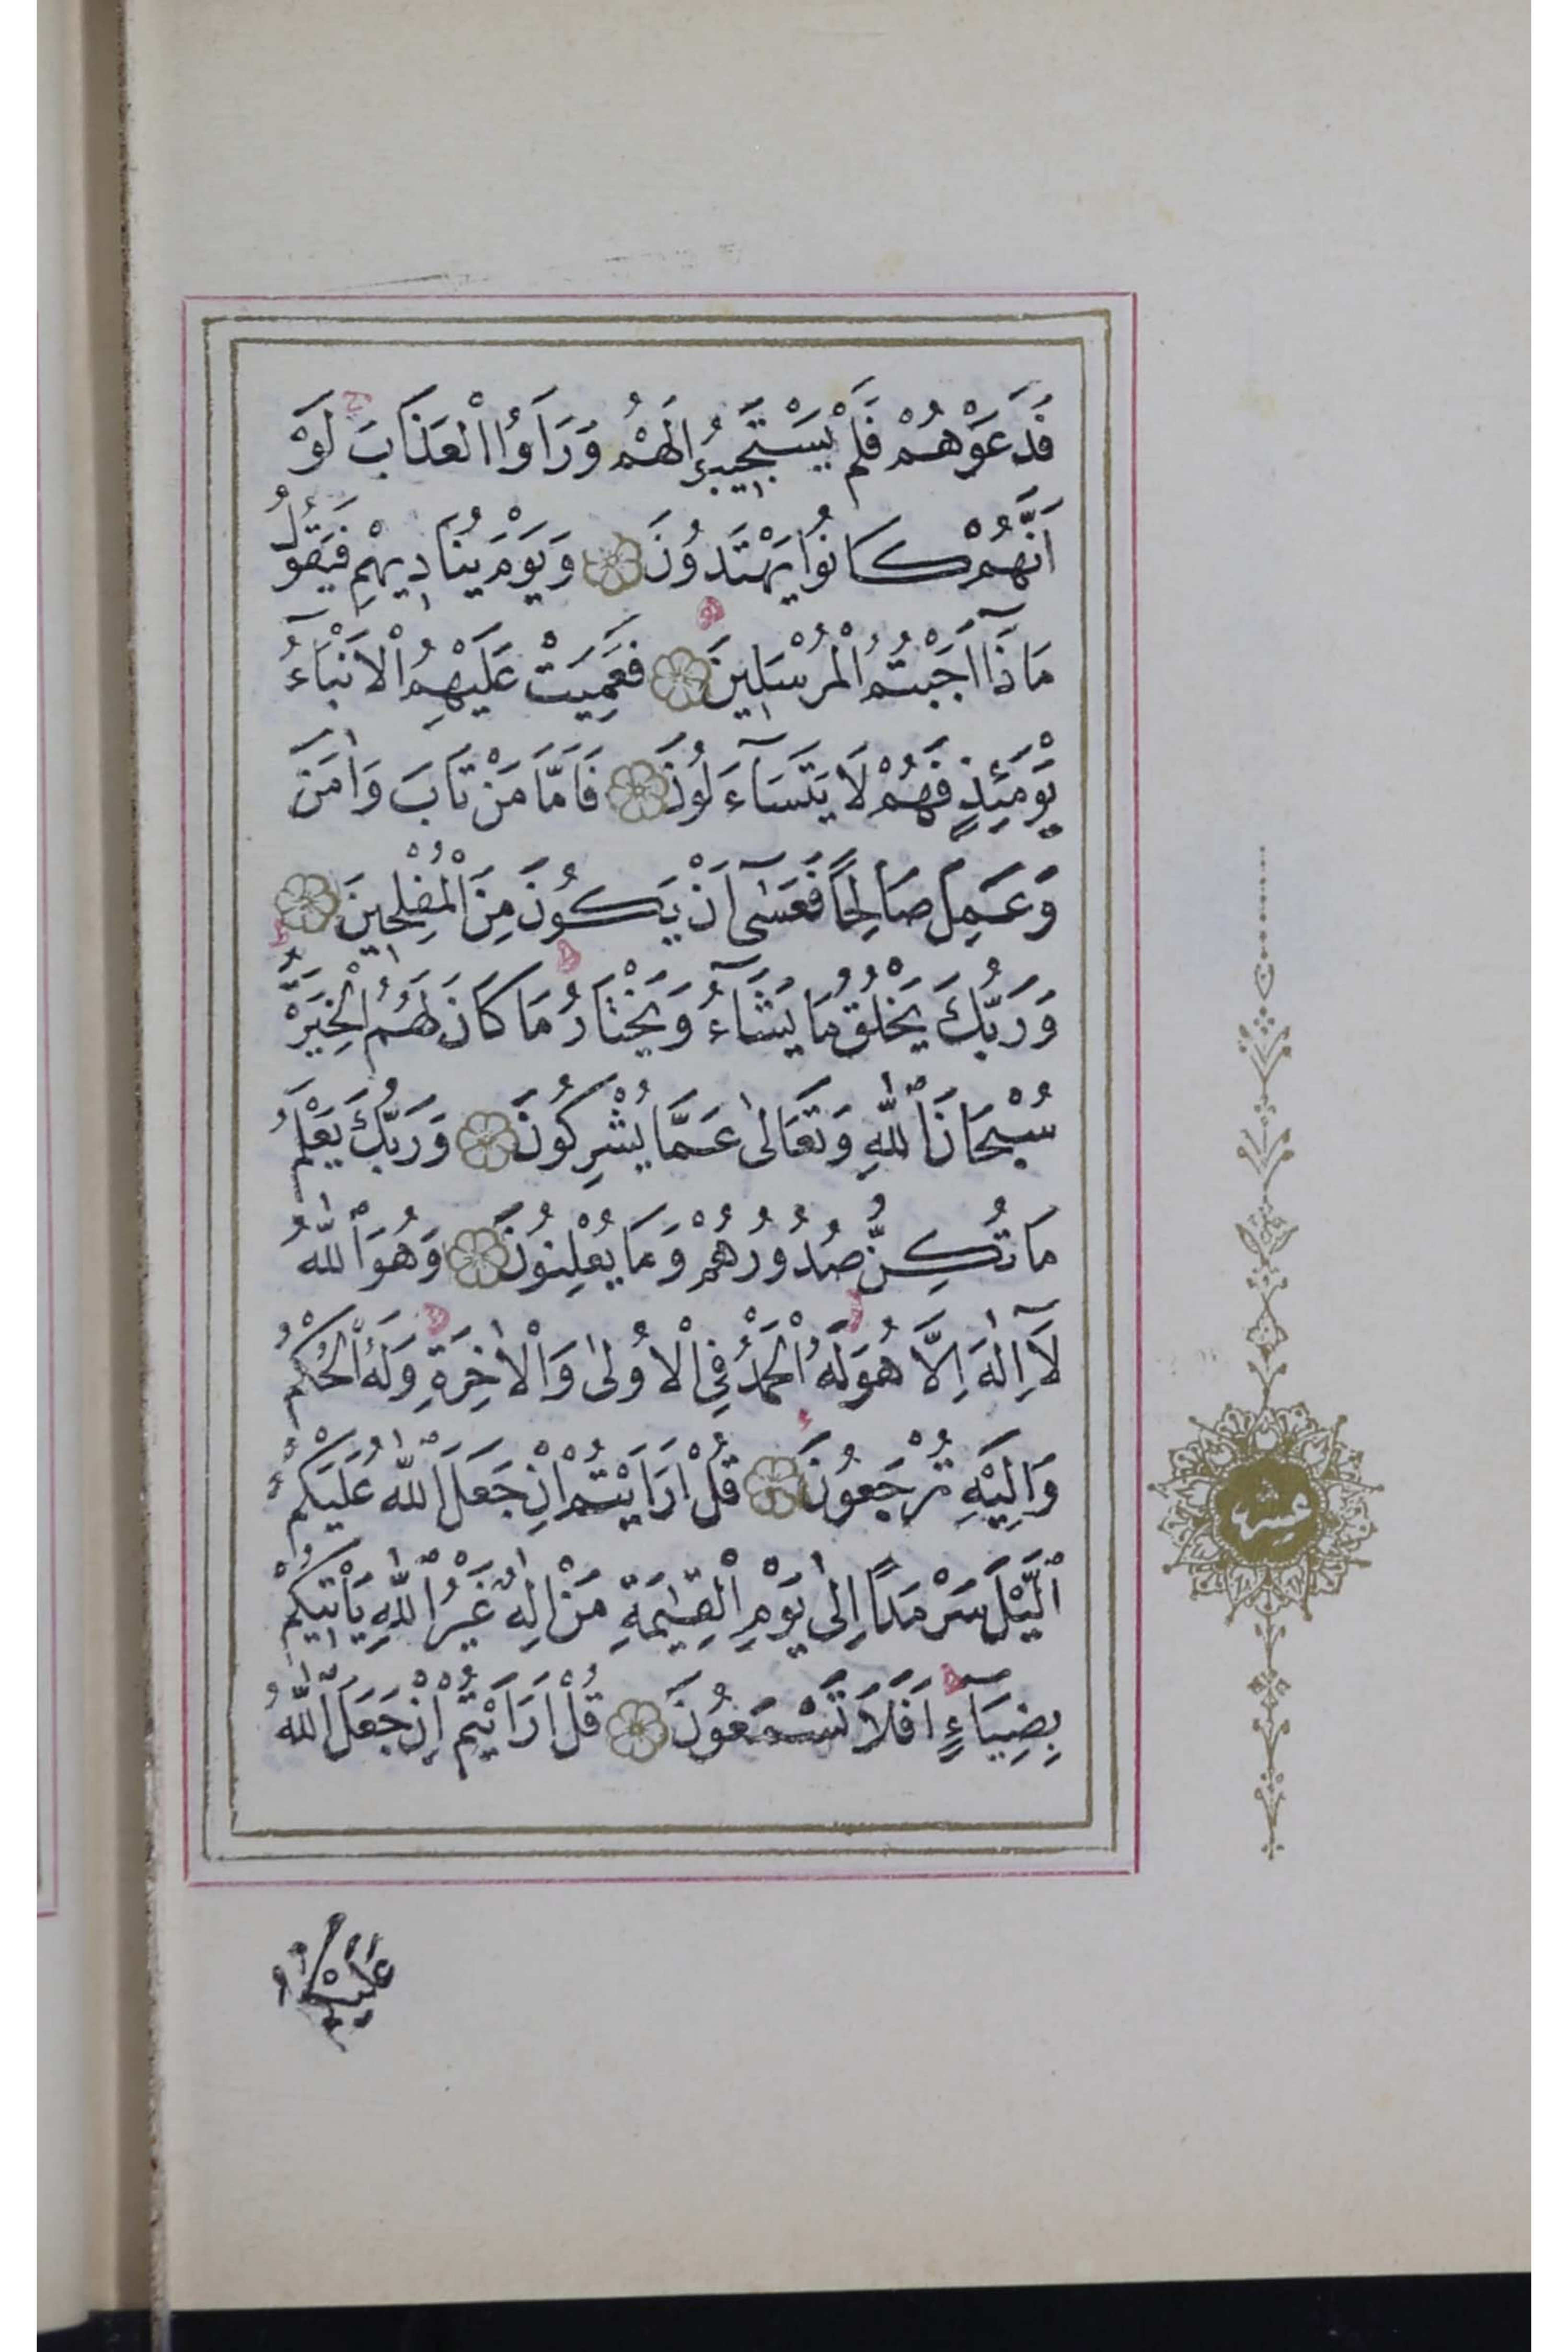 فَدَعَوْهُمْ فَلَمْ يَسْتَجِيبُوا لَهُمْ وَرَاَوُا الْعَذَابَ لَوْ
اَنَّهُمْ كَانُوا يَهْتَدُونَ وَيَوْمَ يُنَادِيهِمْ فَيَقُولُ
مَاذَٓا اَجَبْتُمُ الْمُرْسَلِينَ فَعَمِيَتْ عَلَيْهِمُ الْاَنْبَٓاءُ
يَوْمَئِذٍ فَهُمْ لَا يَتَسَٓاءَلُونَ فَاَمَّا مَنْ تَابَ وَاٰمَنَ
وَعَمِلَ صَالِحًا فَعَسٰٓى اَنْ يَكُونَ مِنَ الْمُفْلِحِينَ
وَرَبُّكَ يَخْلُقُ مَا يَشَٓاءُ وَيَخْتَارُ مَا كَانَ لَهُمُ الْخِيَرَةُ
سُبْحَانَ ٱللّٰهِ وَتَعَالٰى عَمَّا يُشْرِكُونَ وَرَبُّكَ يَعْلَمُ
مَا تُكِنُّ صُدُورُهُمْ وَمَا يُعْلِنُونَ وَهُوَ ٱللّٰهُ
لَٓا اِلٰهَ اِلَّا هُوَ لَهُ الْحَمْدُ فِي الْاُولٰى وَالْاٰخِرَةِ وَلَهُ الْحُكْمُ
وَاِلَيْهِ تُرْجَعُونَ قُلْ اَرَاَيْتُمْ اِنْ جَعَلَ ٱللّٰهُ عَلَيْكُمُ
ٱلَّيْلَ سَرْمَدًا اِلٰى يَوْمِ الْقِيٰمَةِ مَنْ اِلٰهٌ غَيْرُ ٱللّٰهِ يَاْتِيكُمْ
بِضِيَٓاءٍ اَفَلَا تَسْمَعُونَ قُلْ اَرَاَيْتُمْ اِنْ جَعَلَ ٱللّٰهُ
عَلَيْكُمُ
عشر